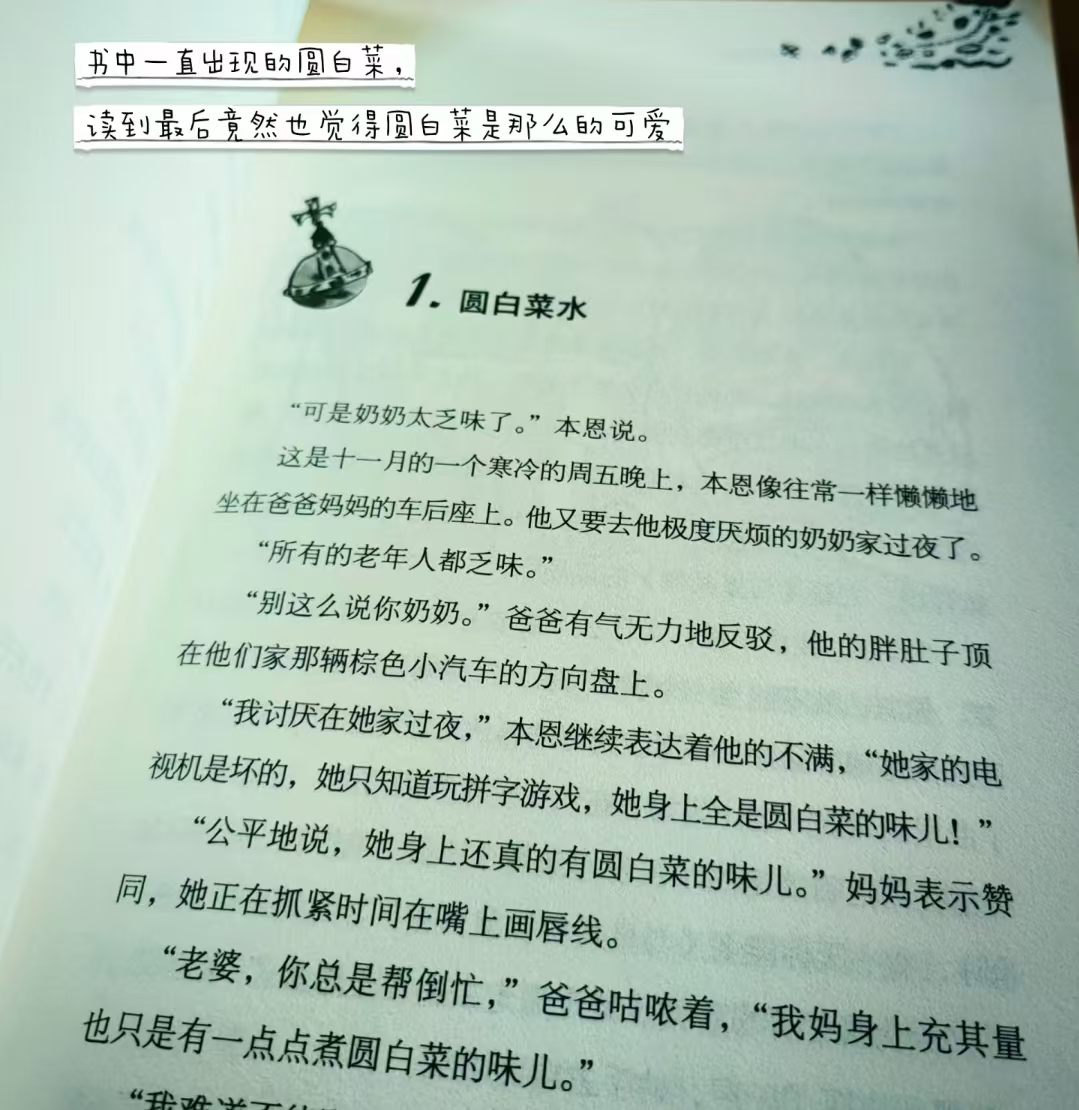 书中一直出现的圆白菜，
读到最后竟然也觉得圆白菜是那么的可爱
1. 圆白菜水
“可是奶奶太乏味了。”本恩说。
这是十一月的一个寒冷的周五晚上，本恩像往常一样懒懒地
坐在爸爸妈妈的车后座上。他又要去他极度厌烦的奶奶家过夜了。
“所有的老年人都乏味。”
“别这么说你奶奶。”爸爸有气无力地反驳，他的胖肚子顶
在他们家那辆棕色小汽车的方向盘上。
“我讨厌在她家过夜，”本恩继续表达着他的不满，“她家的电
视机是坏的，她只知道玩拼字游戏，她身上全是圆白菜的味儿！”
“公平地说，她身上还真的有圆白菜的味儿。”妈妈表示赞
同，她正在抓紧时间在嘴上画唇线。
“老婆，你总是帮倒忙，”爸爸咕哝着，“我妈身上充其量
也只是有一点点煮圆白菜的味儿。”
“我难道不